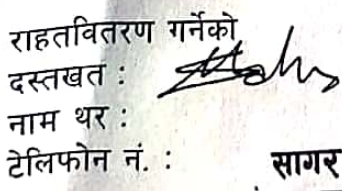 राहतवितरण गर्नेको
दस्तखत :
नाम थर :
टेलिफोन नं. : सागर